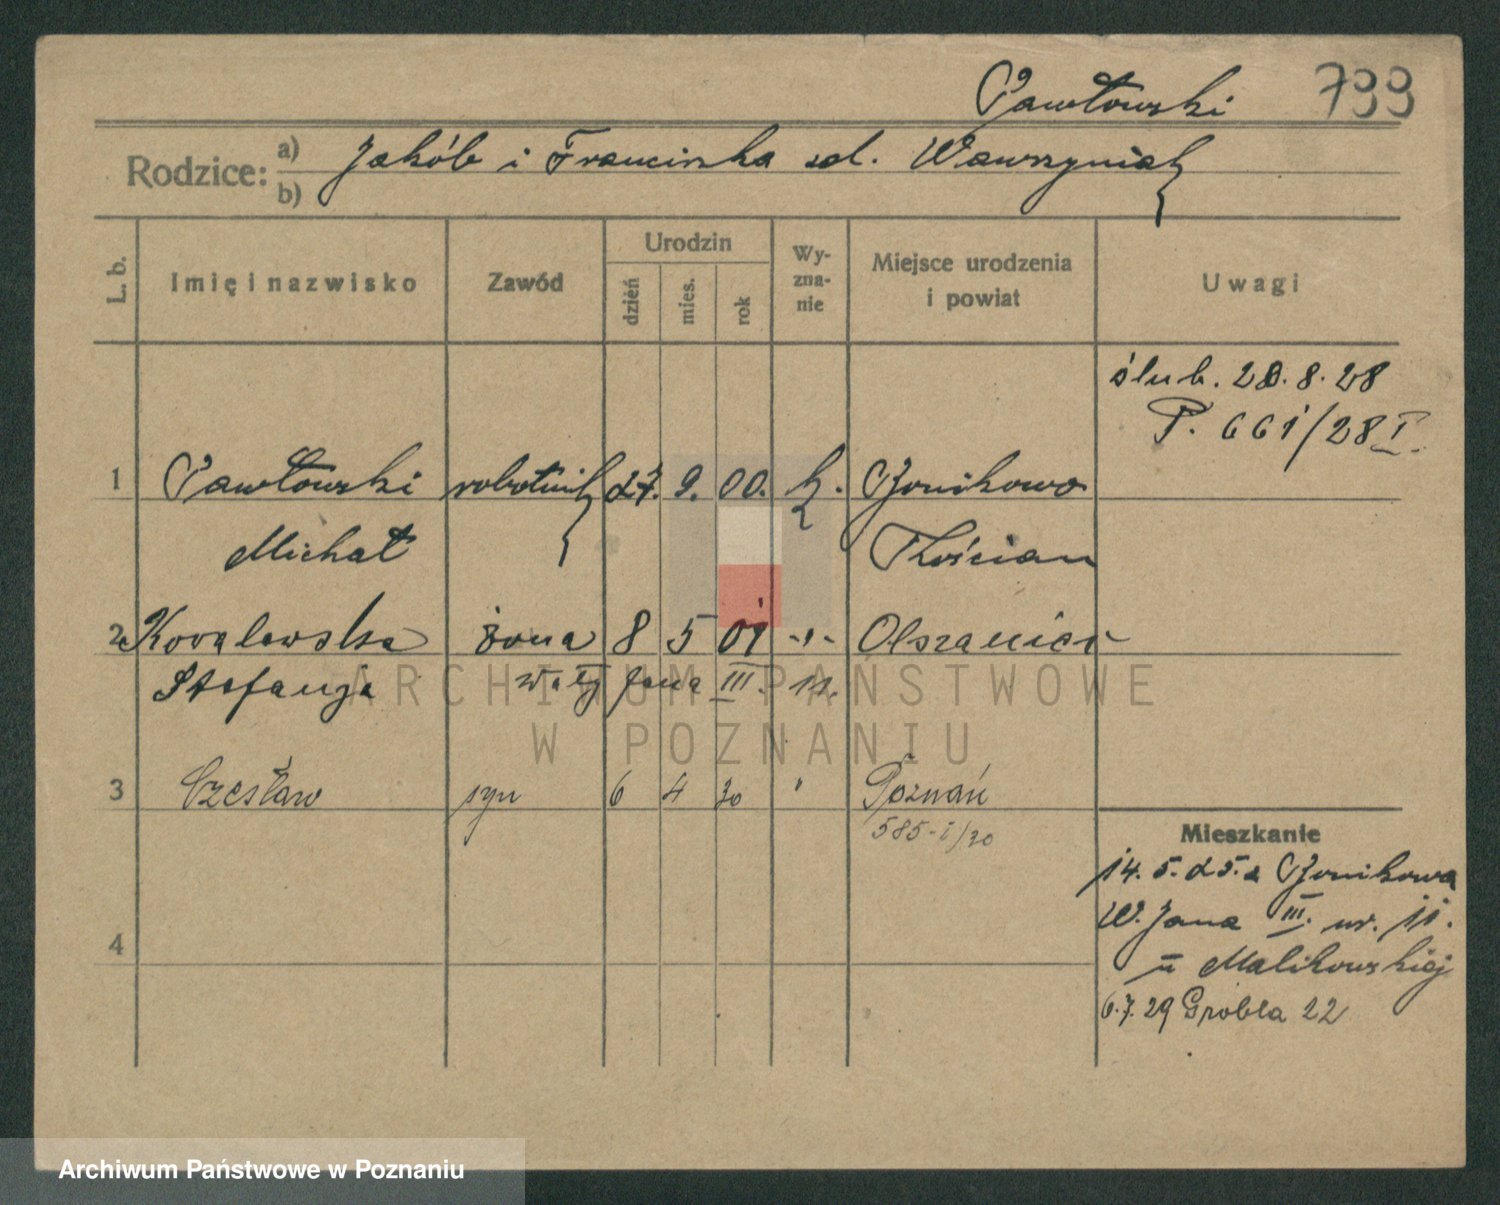 Pawłowski 799
Rodzice: a) Jakób i Franciszka zd. Wawrzyniak
b)
L. b.
Imię i nazwisko
Zawód
Urodzin
dzień
mies.
rok
Wy-
zna-
nie
Miejsce urodzenia
i powiat
Uwagi
ślub. 28.8.28
P. 661/28 I.
1 Pawłowski robotnik 27. 9. 00. k. Czonikowo
Michał Kościan
2 Kowalewska żona 8 5 01 -"-
Stefanja Wały Jana III. 11.
3 Czesław syn 6 4 30 " Poznań
585-I/30
Mieszkanie
14. 5. 25. z
W. Jana III. nr. 11.
4
u Malikowskiej
6.7.29 Grobla 22
ARCHIWUM PAŃSTWOWE
W POZNANIU
Archiwum Państwowe w Poznaniu